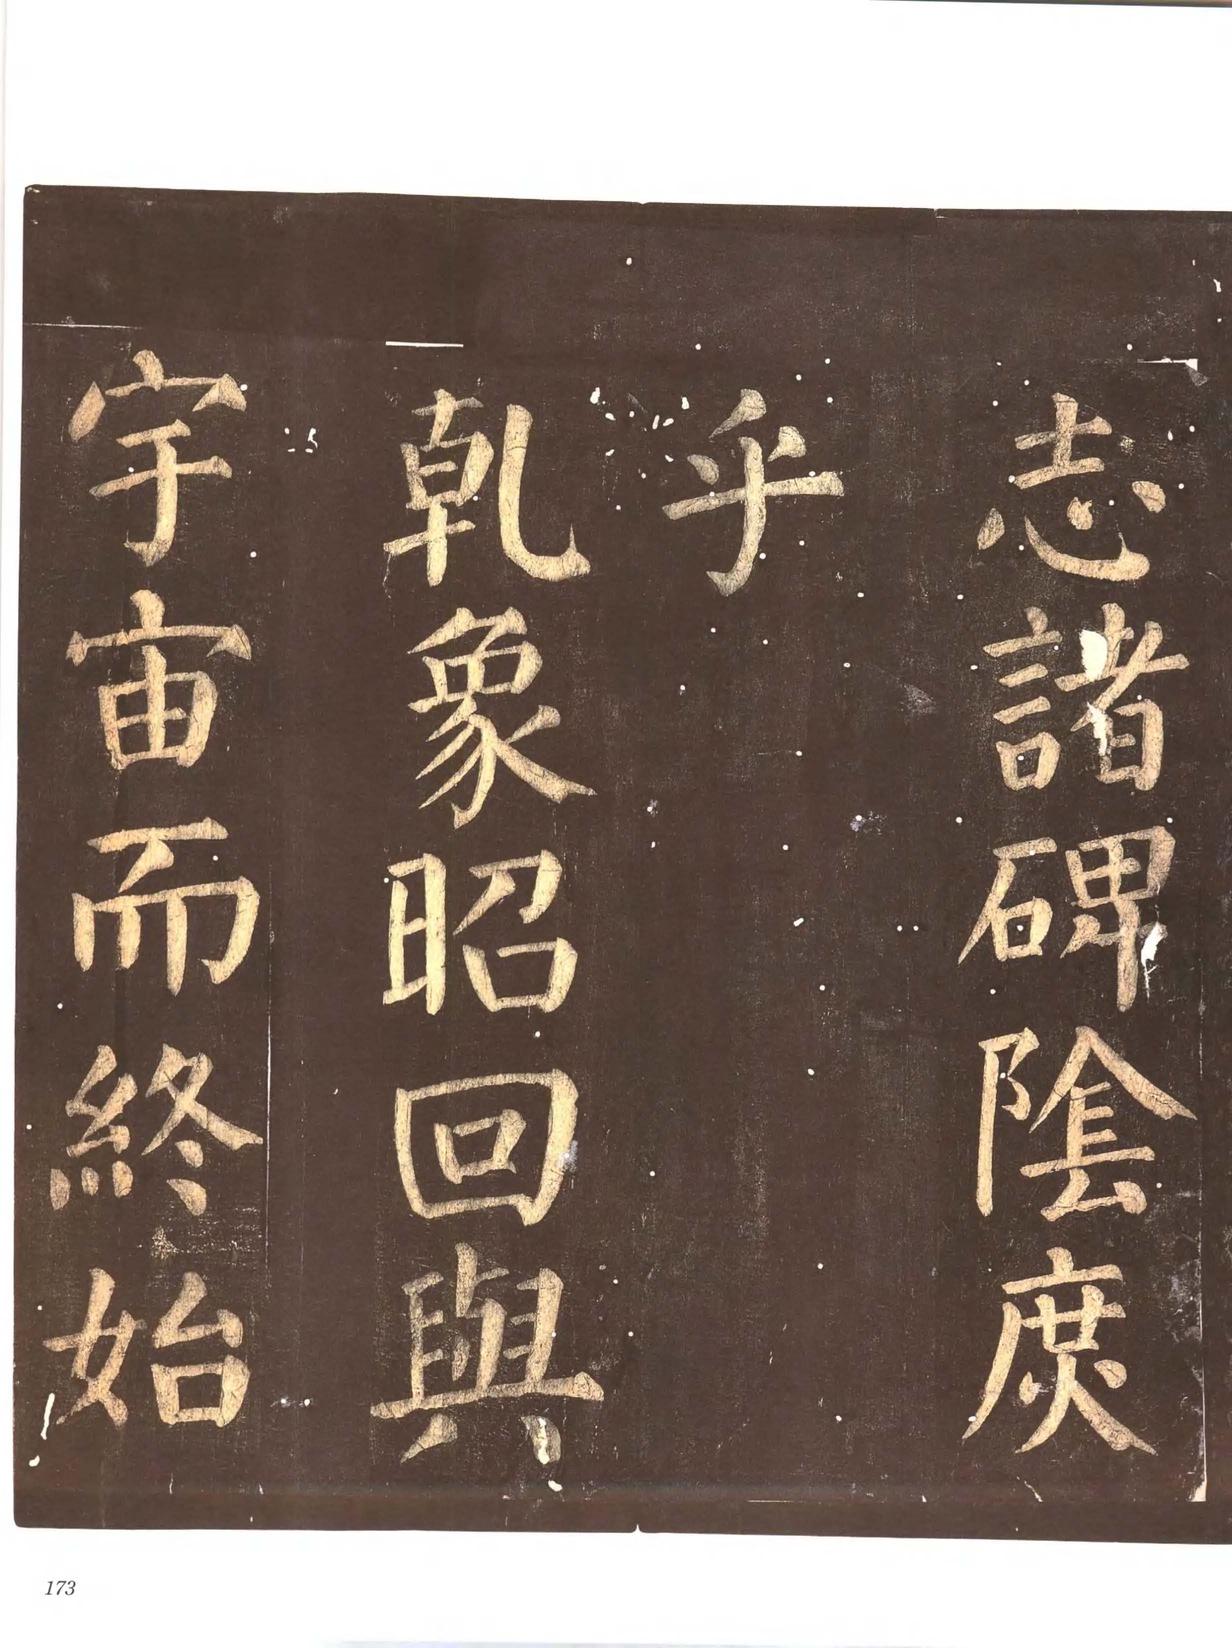 志諸碑陰庻
乎
乹象昭回與
宇宙而終始
173